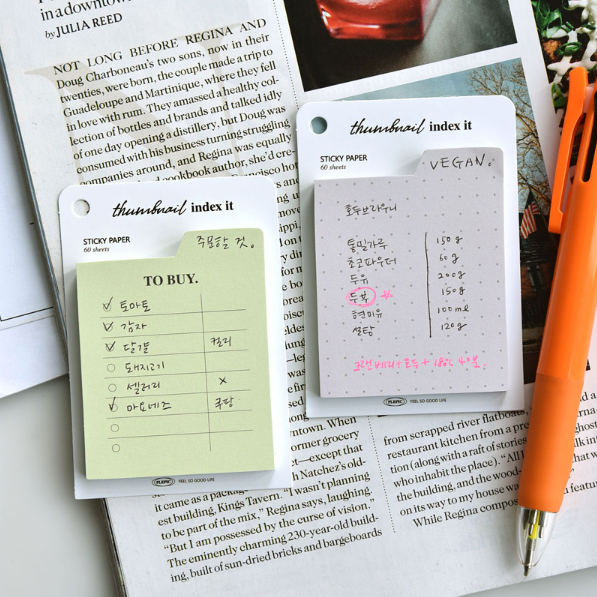 in a downtown
by JULIA REED
NOT LONG BEFORE REGINA AND
Doug Charboneau's two sons, now in their
twenties, were born, the couple made a trip to
Guadeloupe and Martinique, where they fell
in love with rum. They amassed a healthy col-
lection of bottles and brands and talked idly
of one day opening a distillery, but Doug was
consumed with his business turning struggling
companies around, and Regina was equally
cookbook author, she'd cre-
thumbnail index it
STICKY PAPER
60 sheets
주문할 것.
TO BUY.
토마토
감자
달걀 컬리
돼지고기
셀러리 x
마요네즈 쿠팡
PLEPIC FEEL SO GOOD LIFE
thumbnail index it
STICKY PAPER
60 sheets
VEGAN.
호두브라우니
통밀가루 150g
초코파우더 60g
두유 200g
두부 150g
현미유 100ml
설탕 120g
크랜베리+호두+180℃ 40분.
PLEPIC FEEL SO GOOD LIFE
ntown. When
former grocery
et—except that
with Natchez's old-
it came as a package
est building, Kings Tavern. "I wasn't planning
to be part of the mix," Regina says, laughing.
"But I am possessed by the curse of vision."
The eminently charming 230-year-old build-
ing, built of sun-dried bricks and bargeboards
from scrapped river flatboats
restaurant kitchen from a
(along with a raft of stories
who inhabit the place). "All
the building, and the wood-
on its way to my house
While Regina